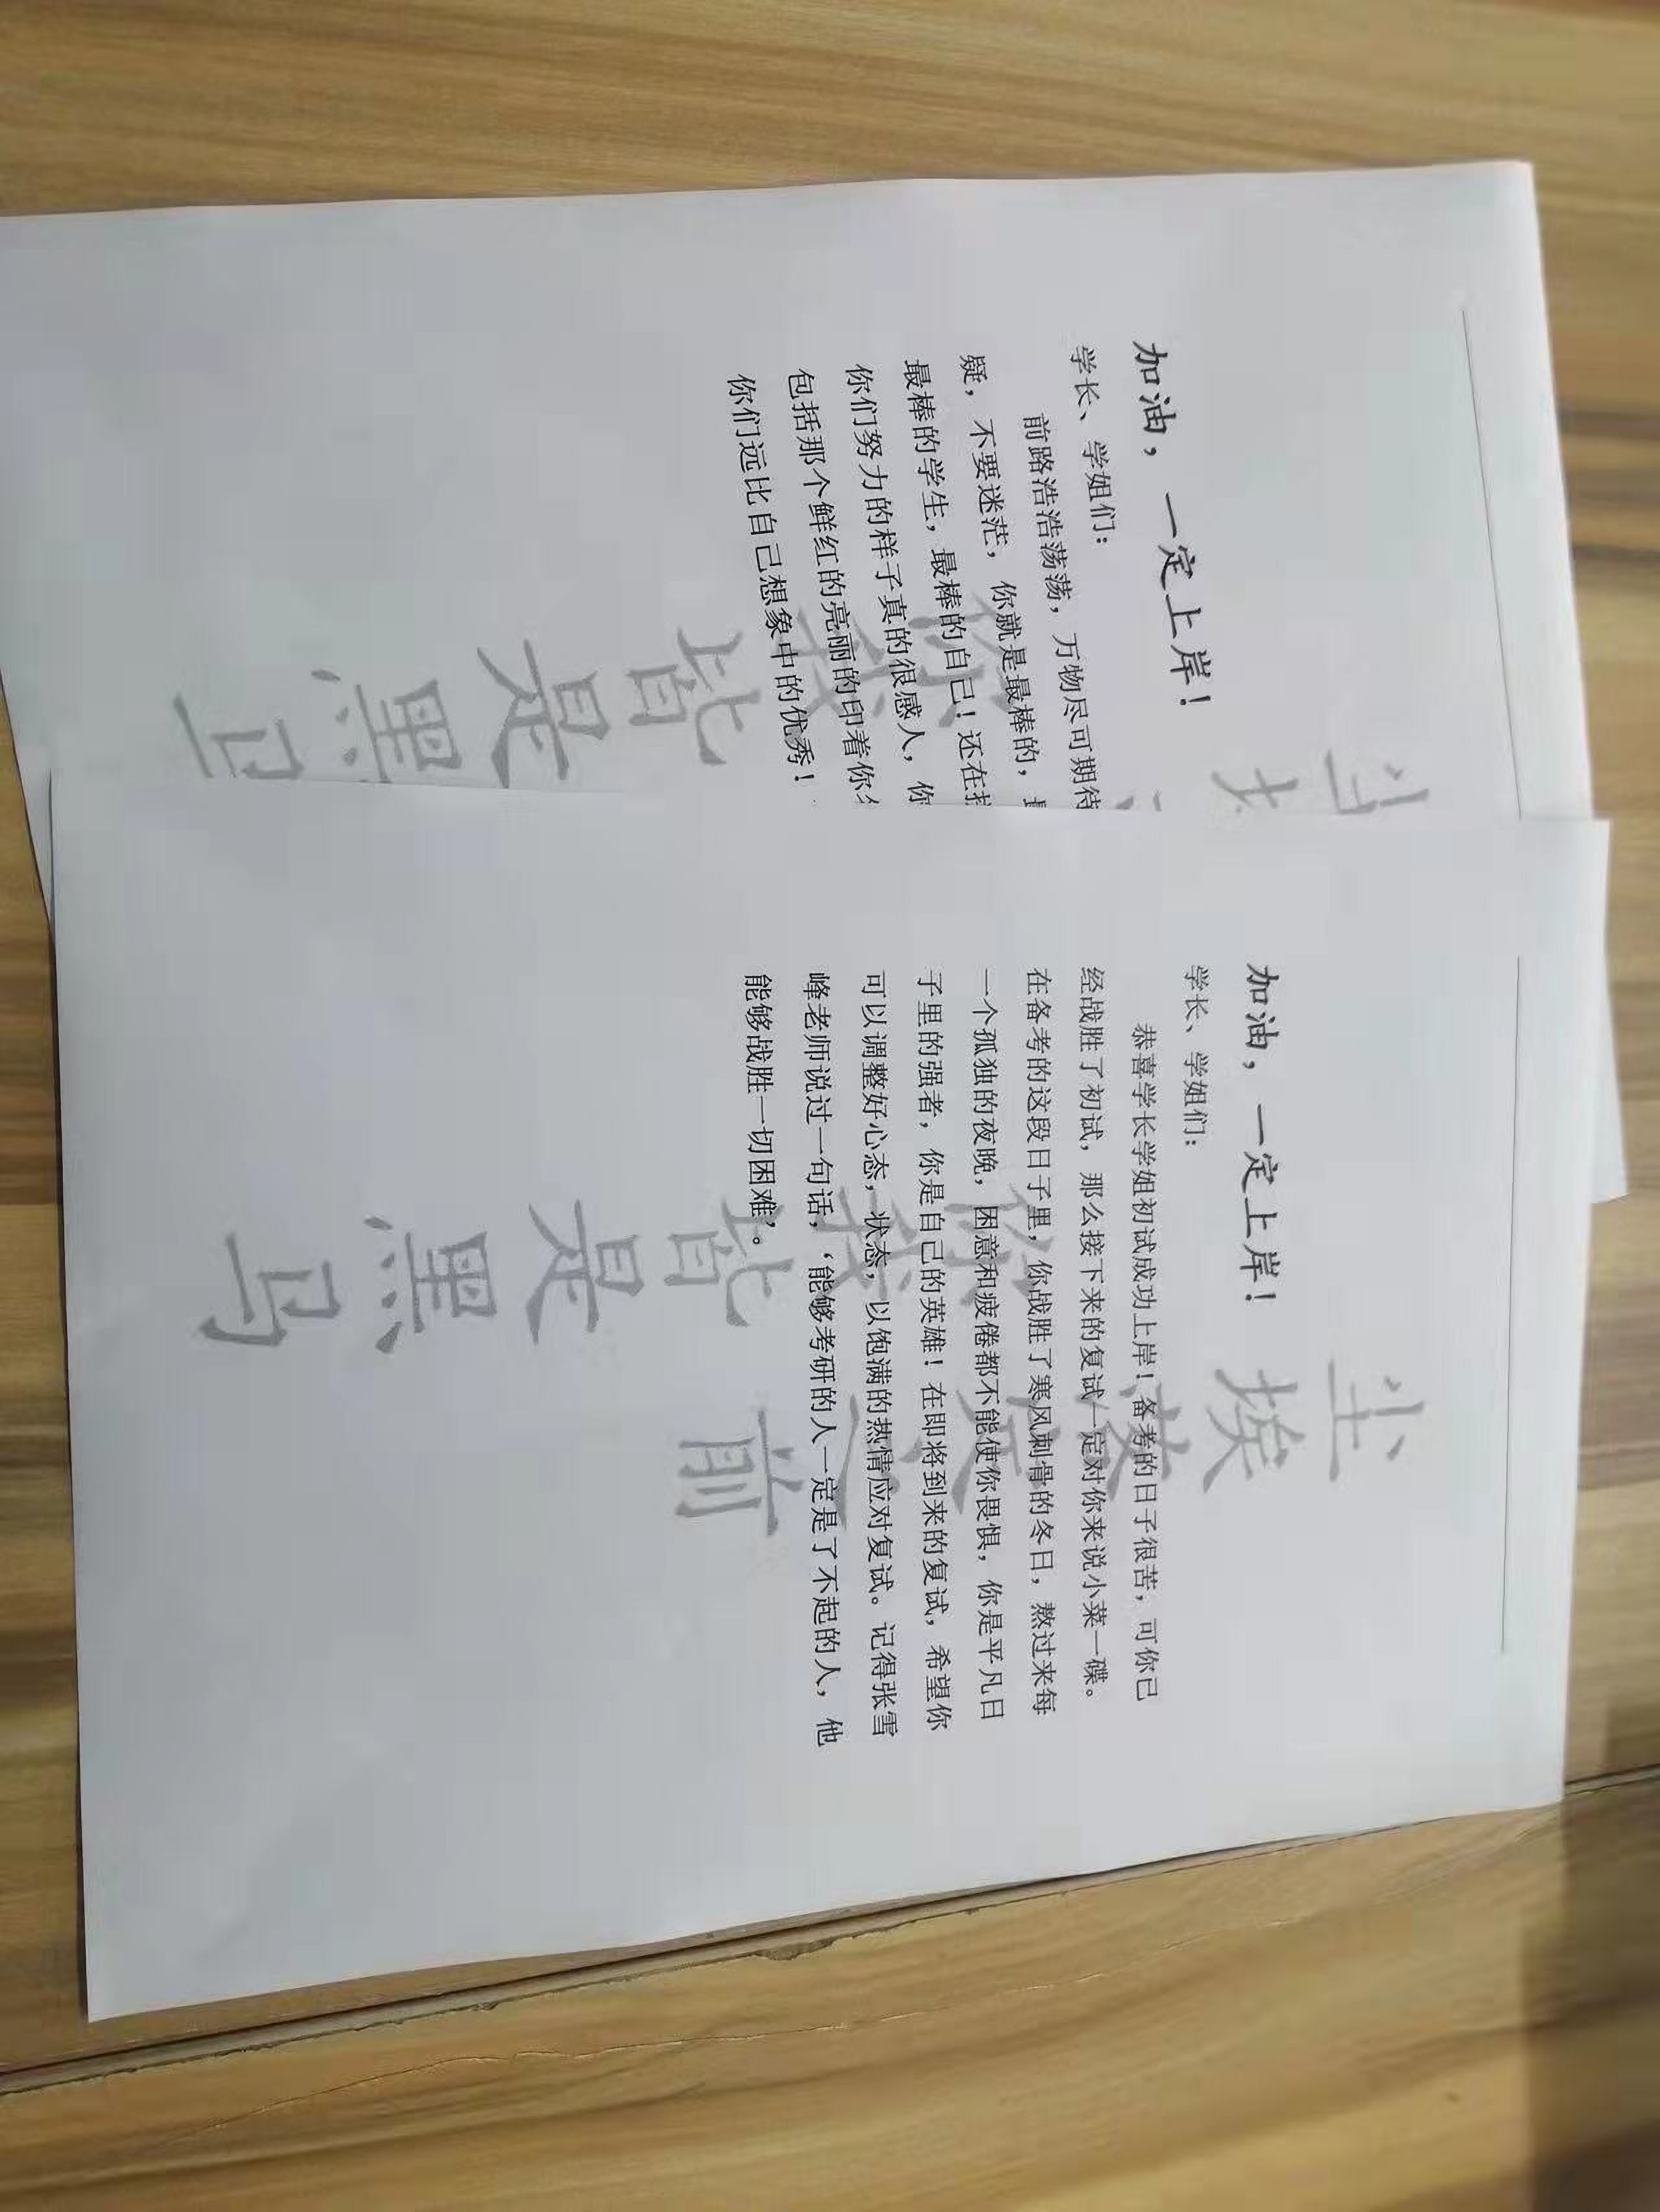 加油，一定上岸！
学长、学姐们：
前路浩浩荡荡，万物尽可期待
疑，不要迷茫，你就是最棒的，
最棒的学生，最棒的自己！还在
你们努力的样子真的很感人，你
包括那个鲜红的亮丽的印着你
你们远比自己想象中的优秀！
你我皆是黑
加油，一定上岸！
学长、学姐们：
恭喜学长学姐初试成功上岸！备考的日子很苦，可你已
经战胜了初试，那么接下来的复试一定对你来说小菜一碟。
在备考的这段日子里，你战胜了寒风刺骨的冬日，熬过来每
一个孤独的夜晚，困意和疲倦都不能使你畏惧，你是平凡日
子里的强者，你是自己的英雄！在即将到来的复试，希望你
可以调整好心态，状态，以饱满的热情应对复试。记得张雪
峰老师说过一句话，‘能够考研的人一定是了不起的人，他
能够战胜一切困难’。
尘埃落定之前
你我皆是黑马